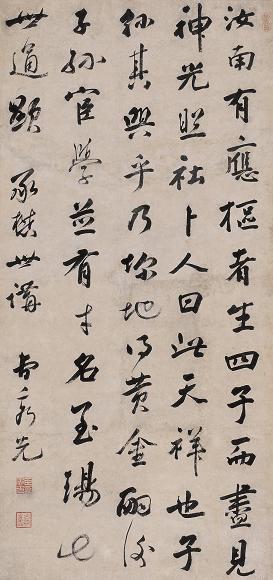 汝南有應樞者生四子而盡見
神光照社卜人曰此天祥也子
孫其興乎乃地得黃金嗣後
子孫宦學並有才名至瑒七
世通顯 承世講 曹秀先